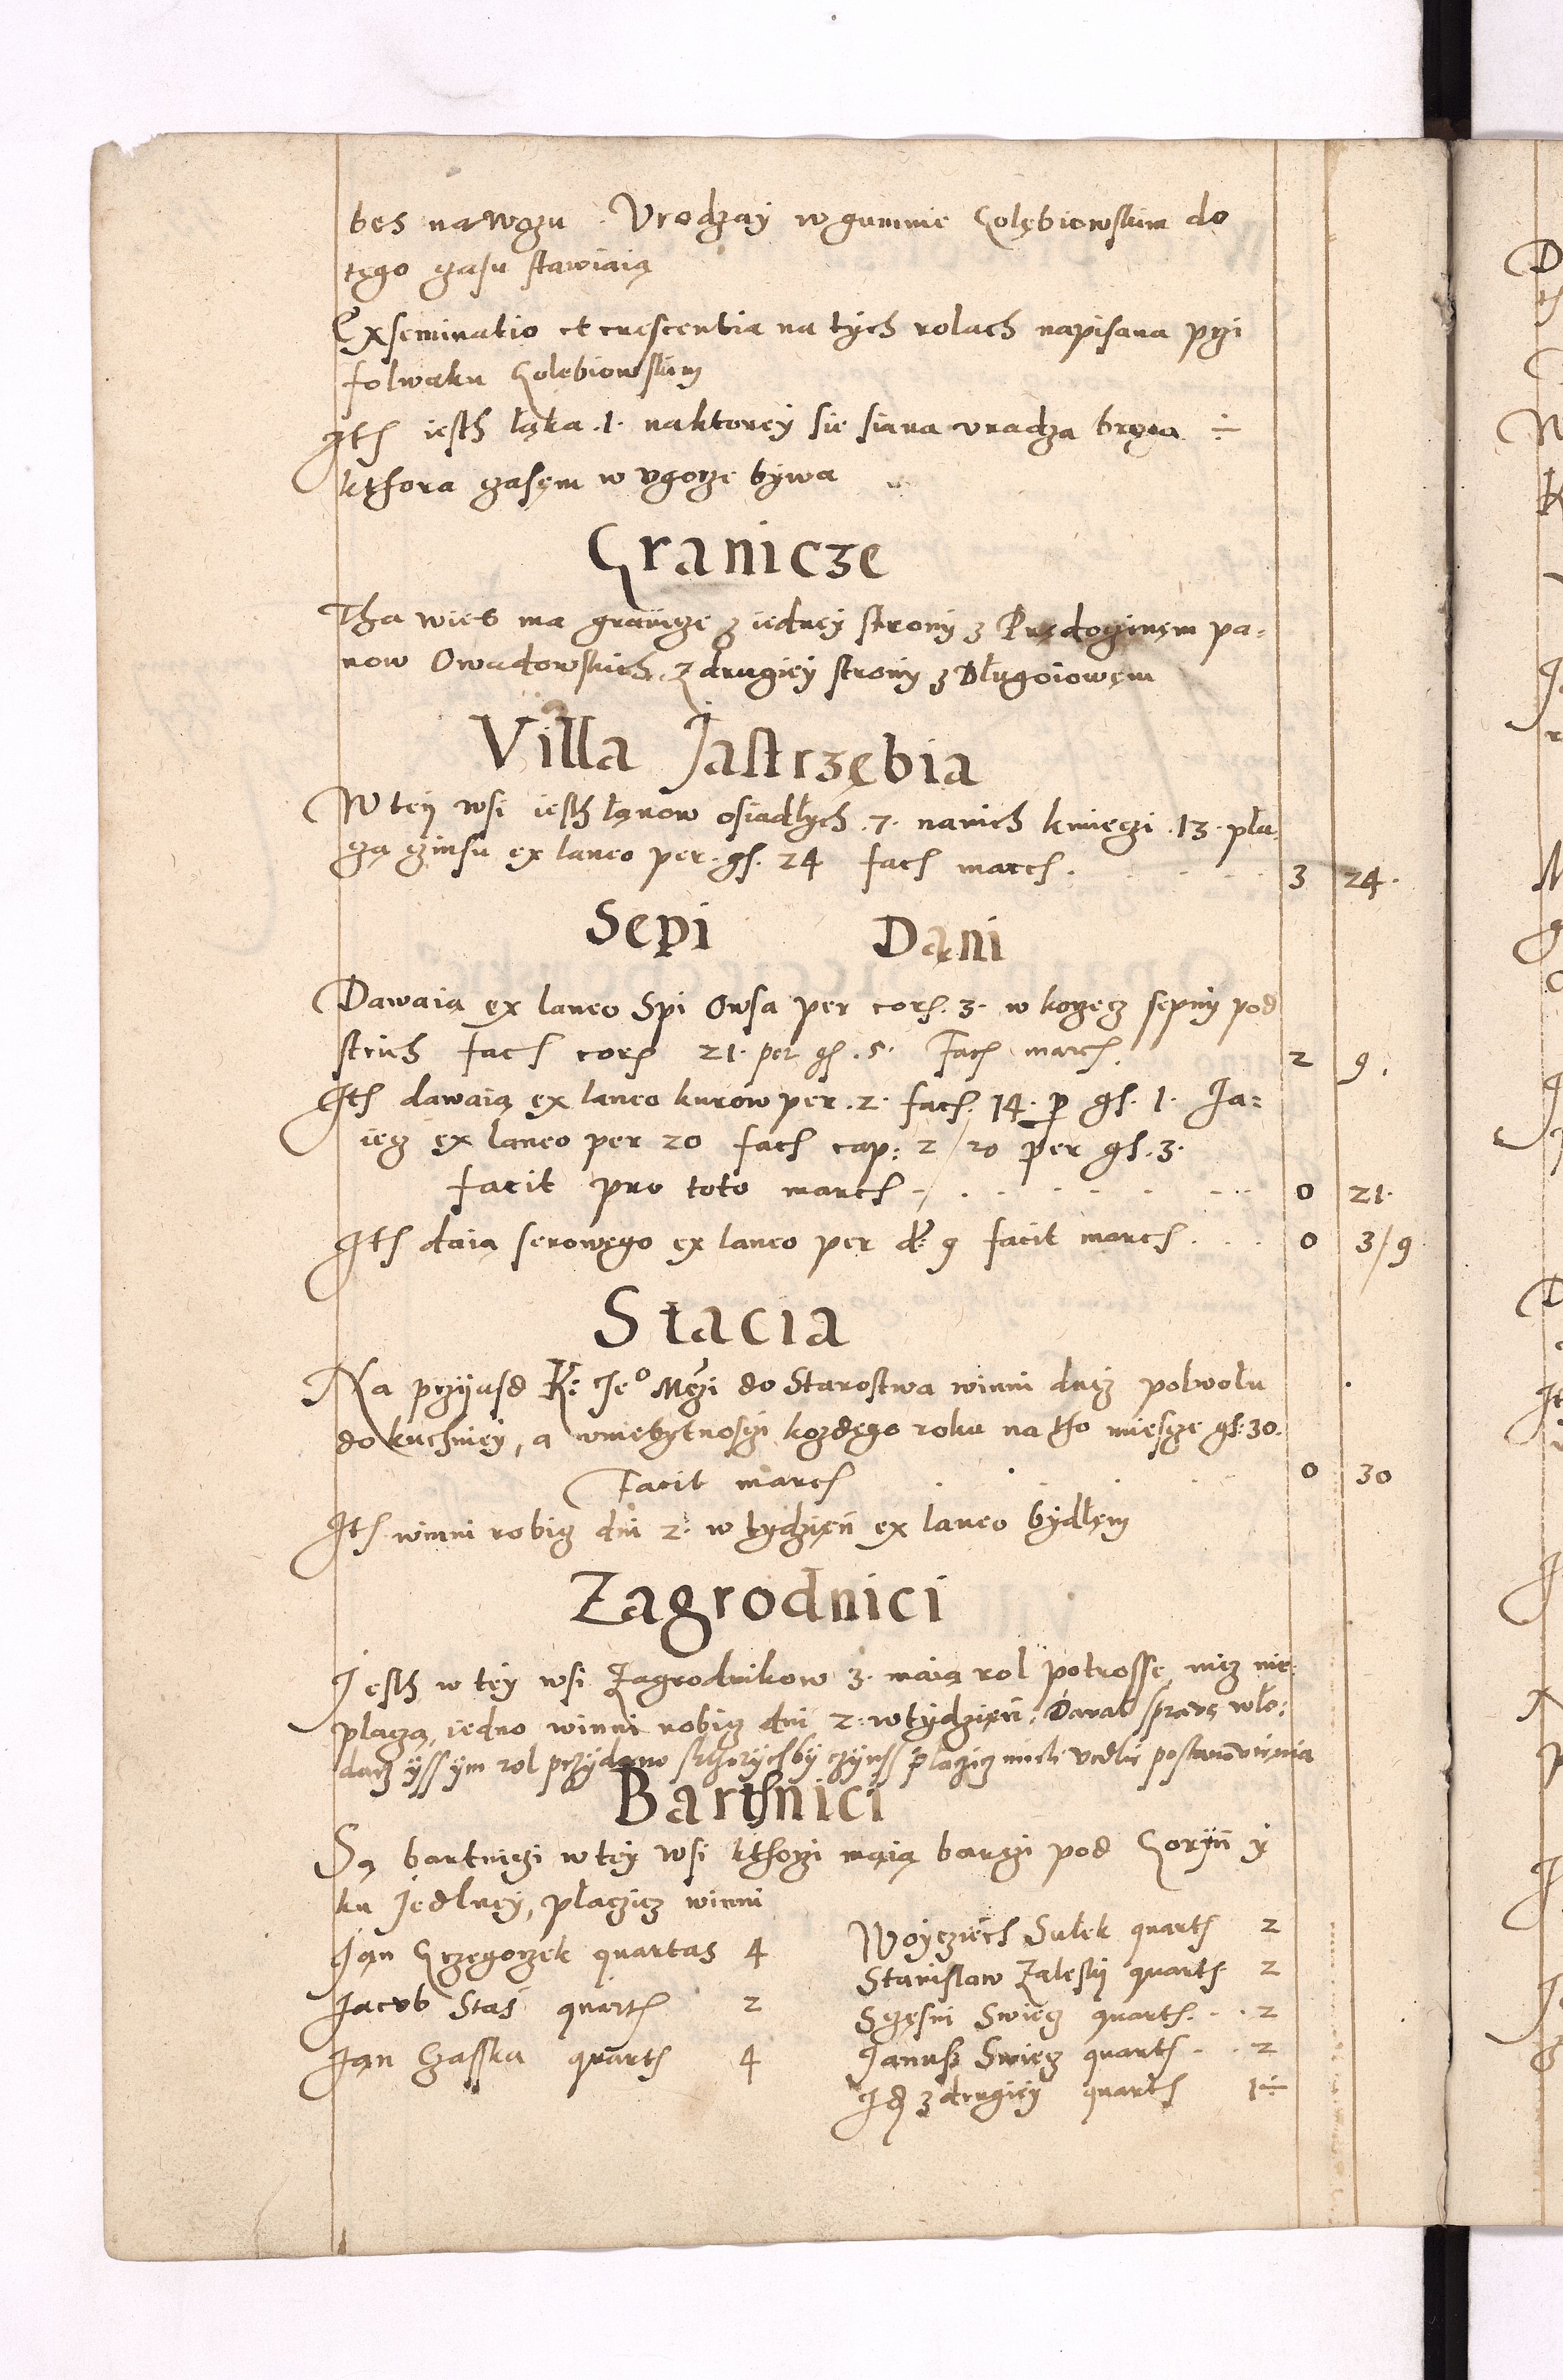 bes nawozu. Vrodzaÿ w gumnie Golębiowskim do
tego czasu stawiaią
Exseminatio et crescentia na tÿch rolach napisana przi
folwaku Golebiowskim
Ith iesth łąka .1. naktoreÿ sie siana vradza broga ÷
kthora czasem w vgorze bÿwa
Granicze
Tha wies ma granicze z iedneÿ stronÿ z pa=
now Owadowskich, z drugieÿ stronÿ z Długoiowem
Villa Jastrzębia
W teÿ wsi iesth łanow osiadłÿch .7. nanich kmieczi .13. pła
czą czinsu ex laneo per gs. 24 fach march. 3 24.
Sepi Dani
Dawaią ex laneo Spi Owsa per corh. 3. w korzecz sepnÿ pod
strich fach corh 21. per gh .5. Fach march. 2 9.
Ith dawaią ex laneo kurow per .2. fach. 14. p gh. 1. Ja=
iecz ex laneo per 20 fach cap: 2/20 per gh. 3.
facit pro toto march 0 21.
Ith daią serowego ex laneo per d. 9 facit march. 0 3/9
Stacia
Na przÿasd K: Je° Mczi do Starostwa winni dacz połwołu
do kuchnieÿ, a wniebÿtnosczi kozdego roku na tho miescze gs: 30.
Facit march 0 30
Ith winni robicz dni 2. w tÿdzień ex laneo bÿdłem
Zagrodnici
Jesth w teÿ wsi Zagrodnikow 3. maią rol potrosse, nicz nie
płaczą, iedno winni robicz dni 2. w tÿdzień. sprawę wło=
darz ÿssÿm rol przÿdano skthorÿchbÿ czÿnss płaczicz mieli vedle postanowienia
Barthnici
Są bartniczi w teÿ wsi kthorzi maią barczi pod Gorÿń ÿ
ku Jedlneÿ, płaczicz winni
Jan Grzegorzek quartas 4
Jacub Staś quarth 2
Jan Czasska quarth 4
Woÿcziech Sulek quarth 2
Stanislaw Zaleskÿ quarth 2
Sczęsni Swiecz quarth. 2
Janusz Swiecz quarth 2
Jd z drugieÿ quarth 1÷